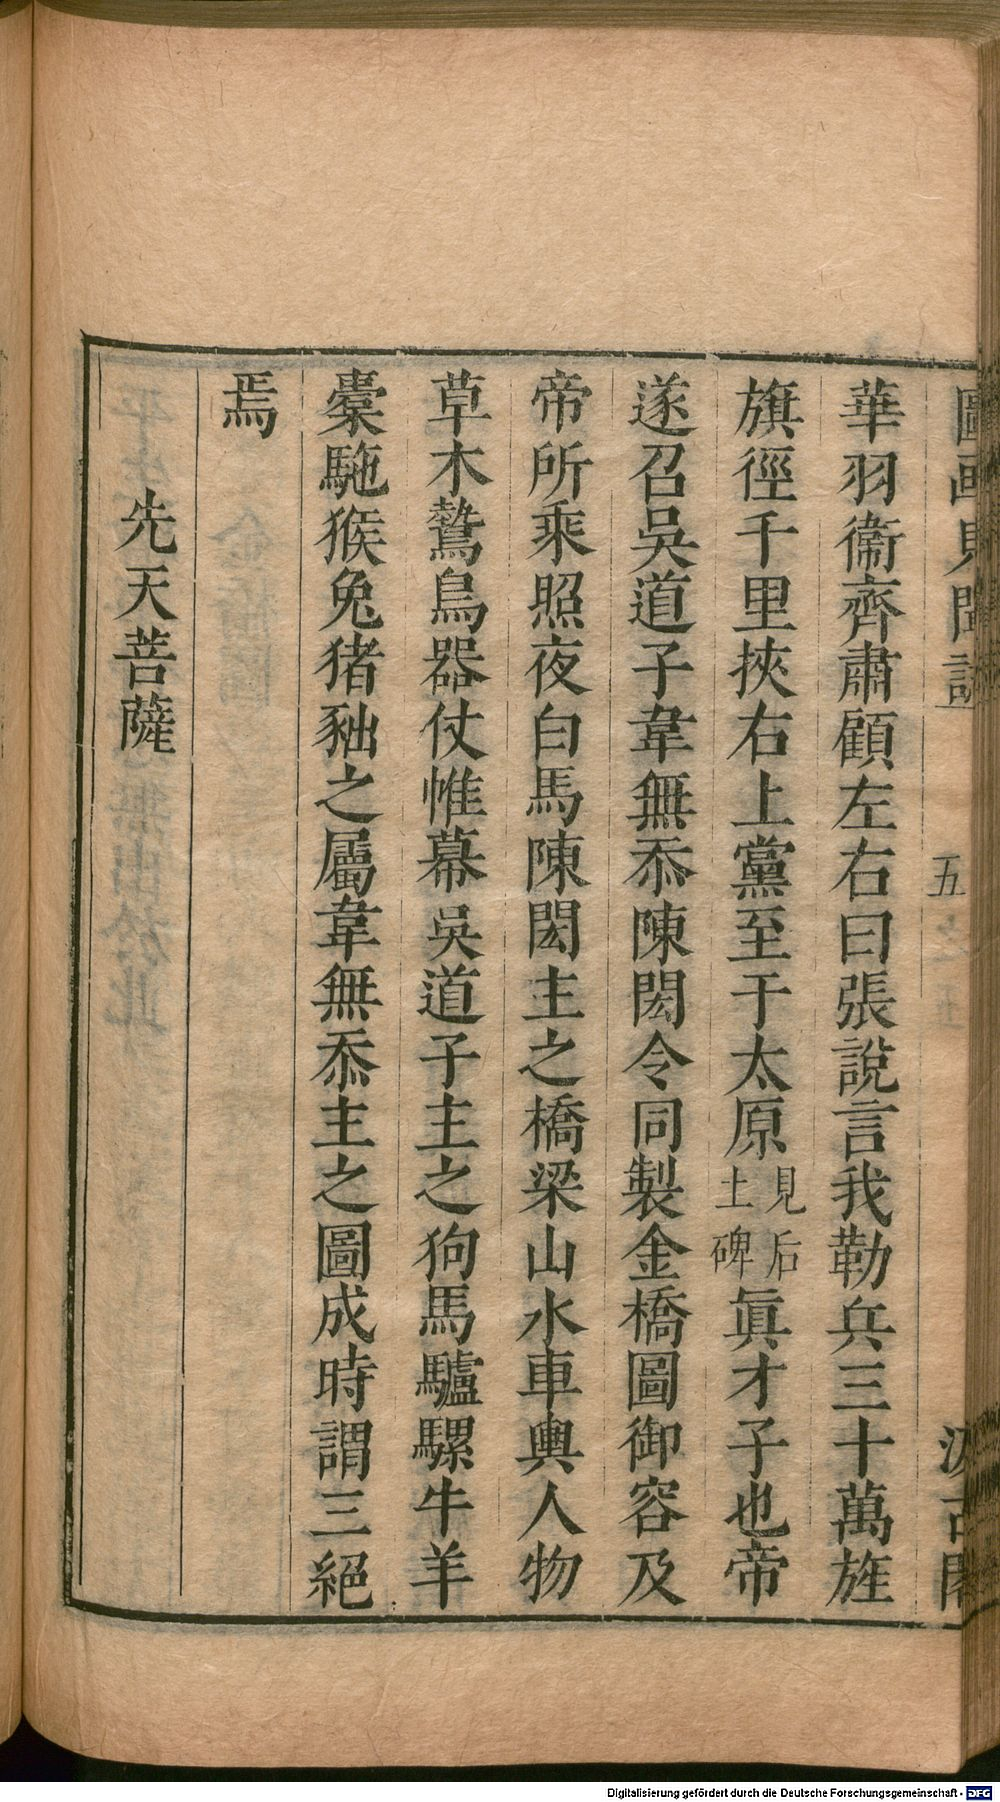 圖畫見聞誌 五之 汲古閣
華羽衞齊肅顧左右曰張說言我勒兵三十萬旌
旗徑千里挾右上黨至于太原見后土碑眞才子也帝
遂召吳道子韋無忝陳閎令同製金橋圖御容及
帝所乘照夜白馬陳閎主之橋梁山水車輿人物
草木鷙鳥器仗帷幕吳道子主之狗馬驢騾牛羊
橐駞猴兔猪貀之屬韋無忝主之圖成時謂三絕
焉
先天菩薩
Digitalisierung gefördert durch die Deutsche Forschungsgemeinschaft - DFG